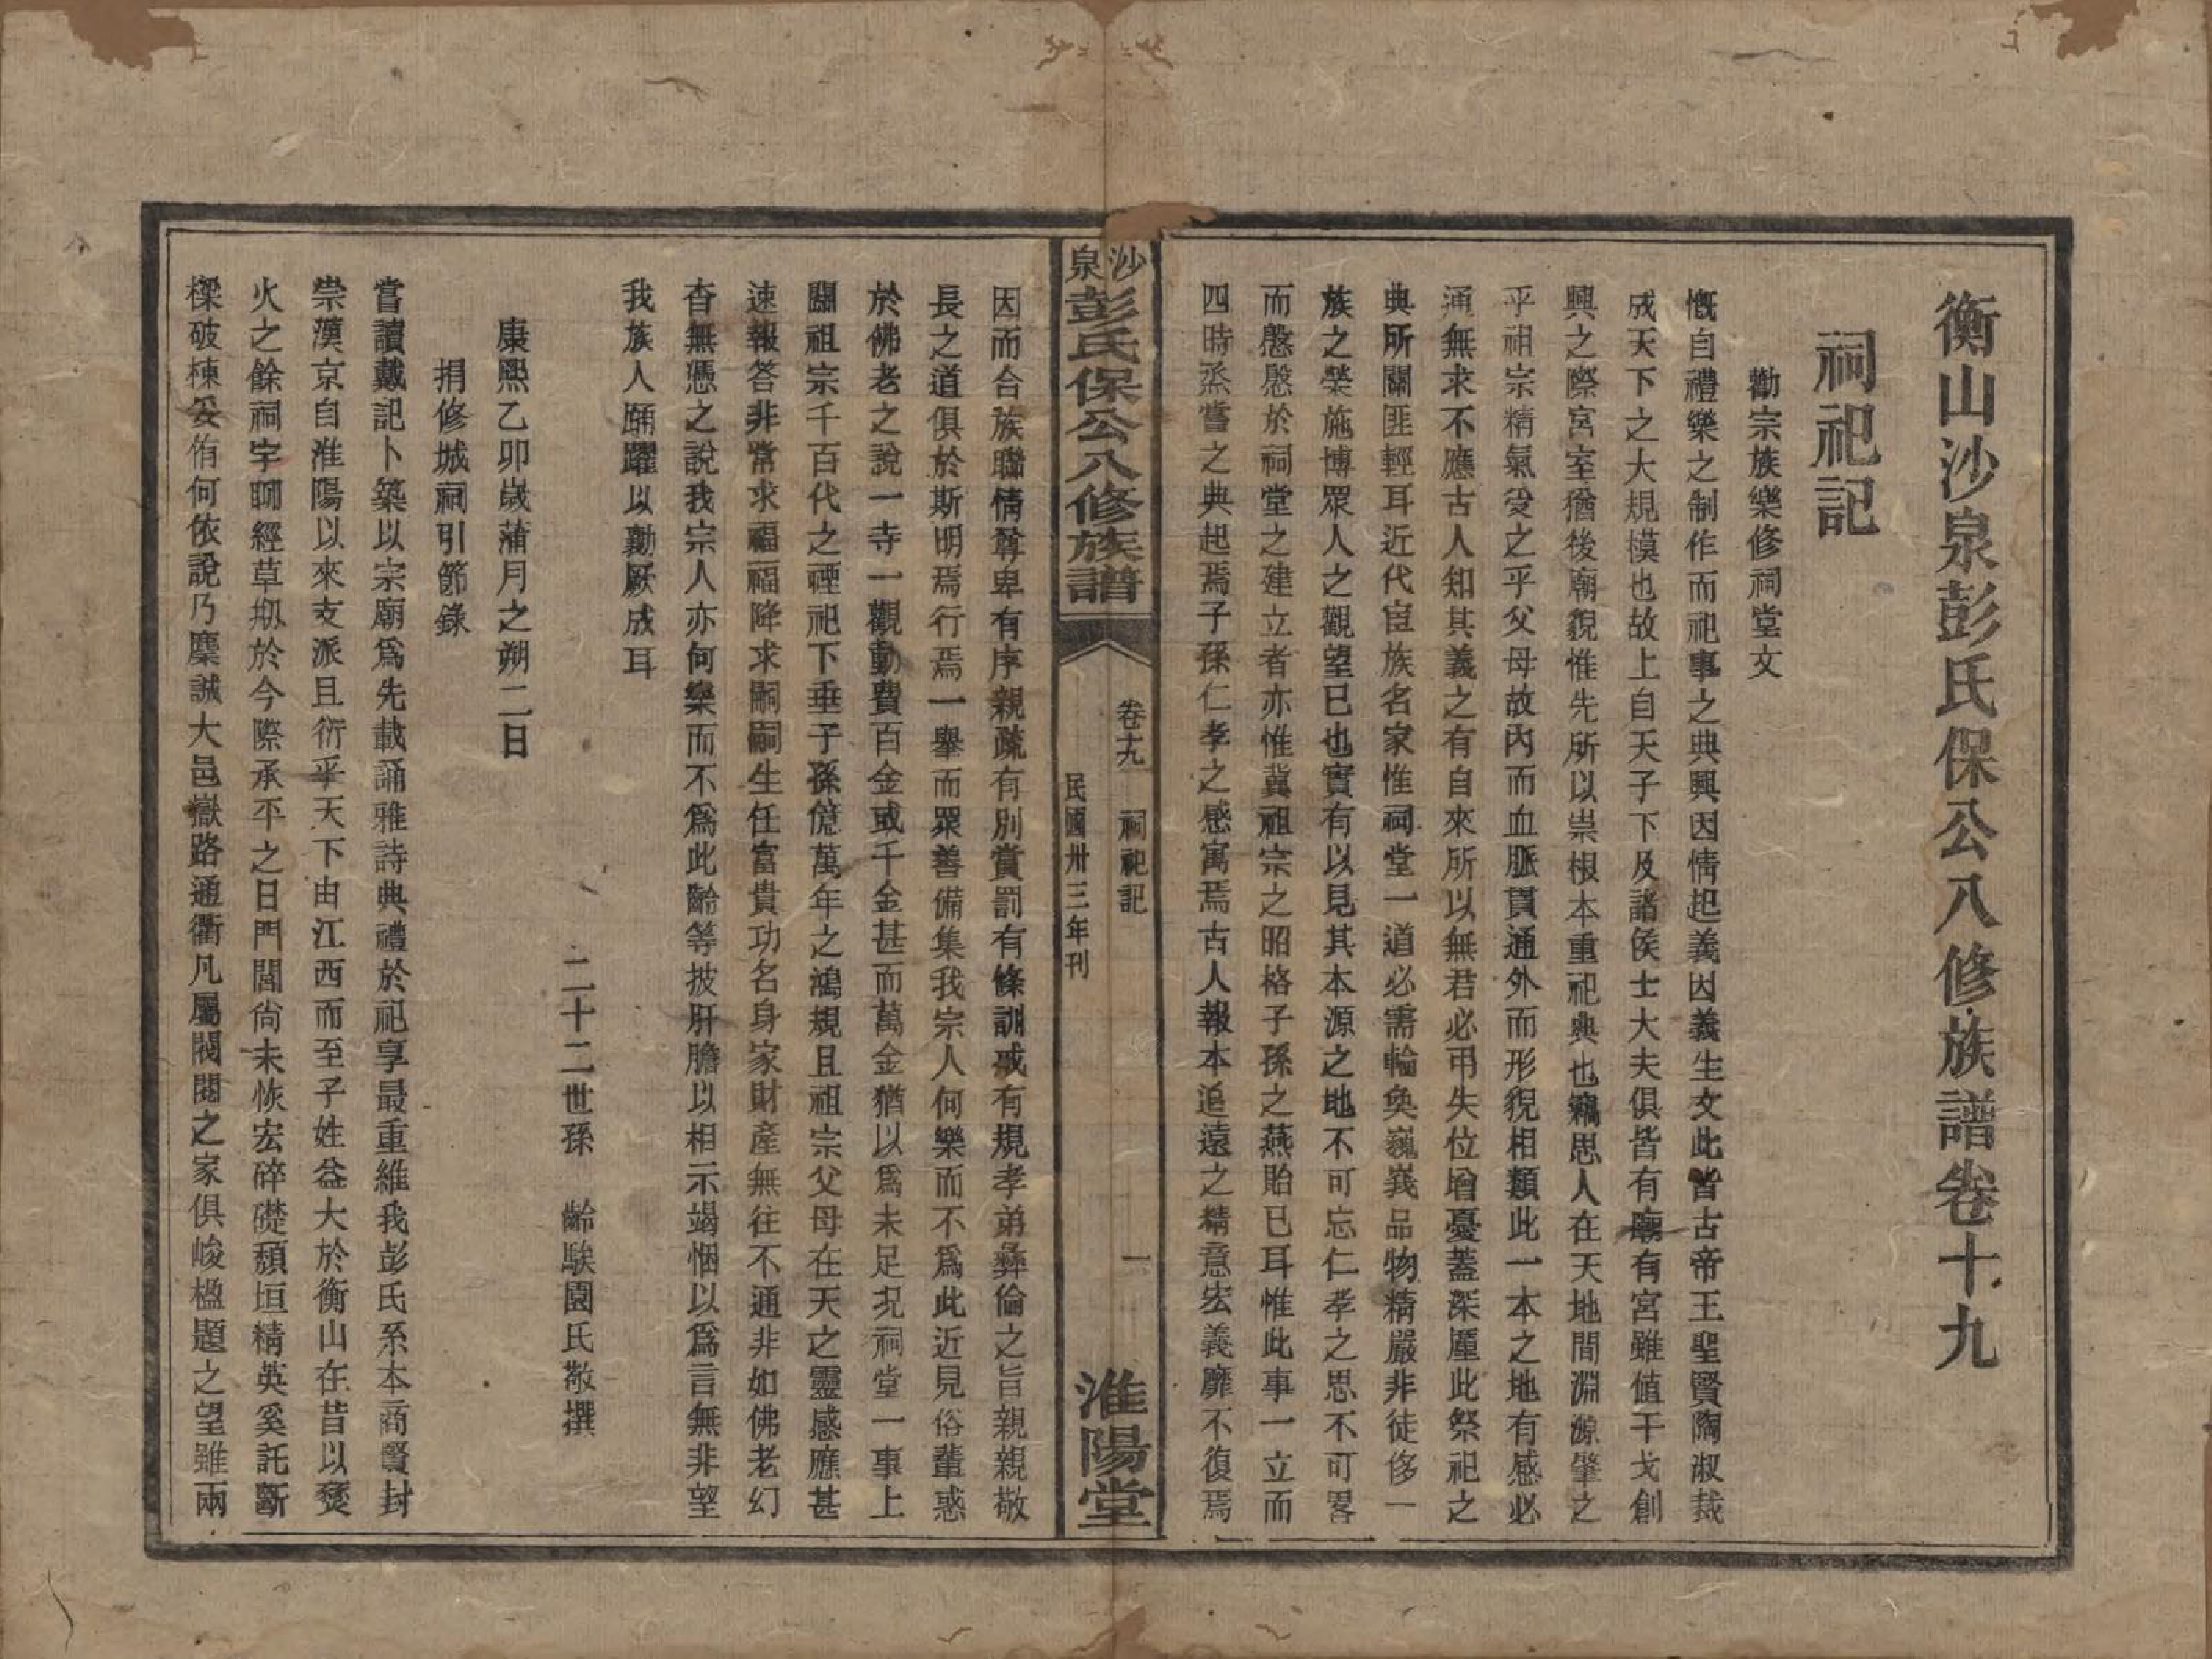 衡山沙泉彭氏保公八修族譜卷十九
祠祀記
勸宗族樂修祠堂文
慨自禮樂之制作而祀事之典興因情起義因義生文此皆古帝王聖賢陶淑裁
成天下之大規模也故上自天子下及諸侯士大夫俱皆有廟有宮雖值干戈創
興之際宮室猶後廟貌惟先所以崇根本重祀典也竊思人在天地間淵源肇之
乎祖宗精氣受之乎父母故內而血脈貫通外而形貌相類此一本之地有感必
通無求不應古人知其義之有自來所以無君必弔失位增憂蓋深廑此祭祀之
典所關匪輕耳近代宦族名家惟祠堂一道必需輪奐巍峩品物精嚴非徒侈一
族之榮施博眾人之觀望已也實有以見其本源之地不可忘仁孝之思不可畧
而慇慇於祠堂之建立者亦惟冀祖宗之昭格子孫之燕貽已耳惟此事一立而
四時烝嘗之典起焉子孫仁孝之感寓焉古人報本追遠之精意宏義靡不復焉
沙泉彭氏保公八修族譜
卷十九 祠祀記 一
民國卅三年刊
淮陽堂
因而合族聯情尊卑有序親疏有別賞罰有條訓戒有規孝弟彝倫之旨親親敬
長之道俱於斯明焉行焉一舉而眾善備集我宗人何樂而不爲此近見俗輩惑
於佛老之說一寺一觀動費百金或千金甚而萬金猶以爲未足況祠堂一事上
關祖宗千百代之禋祀下垂子孫億萬年之鴻規且祖宗父母在天之靈感應甚
速報答非常求福福降求嗣嗣生任富貴功名身家財產無往不通非如佛老幻
杳無憑之說我宗人亦何樂而不爲此齡等披肝膽以相示竭悃以爲言無非望
我族人踴躍以勷厥成耳
二十二世孫 齡騃園氏敬撰
康熙乙卯歲蒲月之朔二日
捐修城祠引節錄
嘗讀戴記卜築以宗廟爲先載誦雅詩典禮於祀享最重維我彭氏系本商賢封
崇漢京自淮陽以來支派且衍乎天下由江西而至子姓益大於衡山在昔以燹
火之餘祠宇㫰經草刱於今際承平之日門閭尙未恢宏碎礎頽垣精英奚託斷
樑破棟妥侑何依說乃麇誠大邑嶽路通衢凡屬閥閱之家俱峻楹題之望雖兩